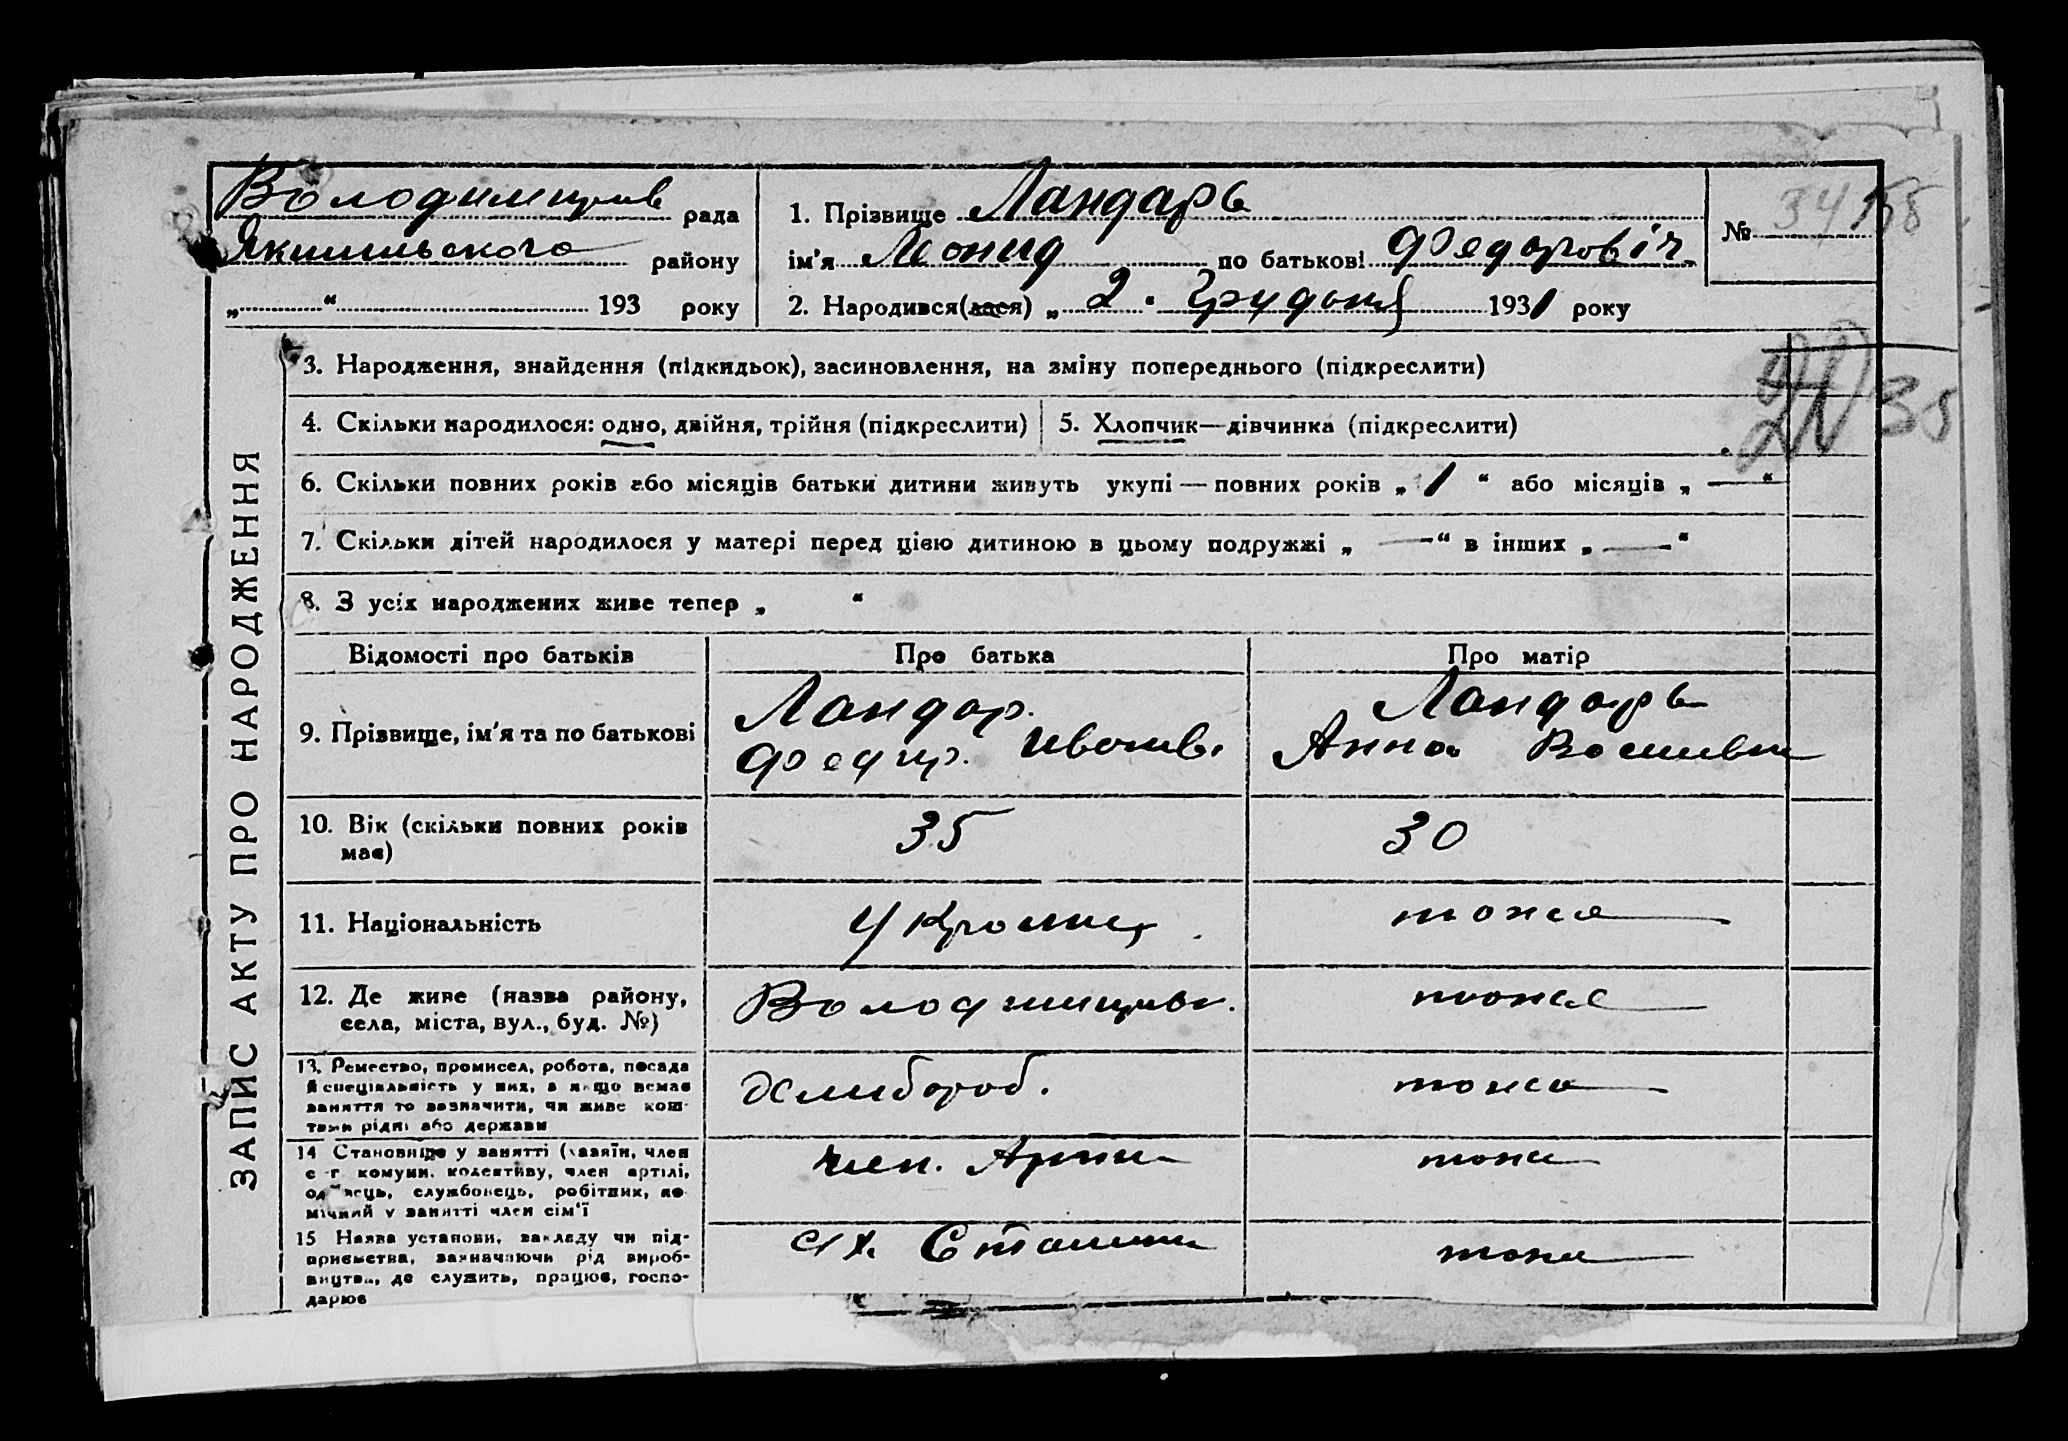 Володимирів рада
Якимівського району
„ “ 193 року
1. Прізвище Ландарь
ім'я Леонид по батькові Федоровіч
2. Народився(лася) „ 2 “ Грудоня 1931 року
№ 34
3. Народження, знайдення (підкидьок), засиновлення, на зміну попереднього (підкреслити)
4. Скільки народилося: одно, двійня, трійня (підкреслити)
5. Хлопчик—дівчинка (підкреслити)
35
6. Скільки повних років або місяців батьки дитини живуть укупі — повних років „ 1 “ або місяців „ — “
7. Скільки дітей народилося у матері перед цією дитиною в цьому подружжі „ — “ в інших „ — “
8. З усіх народжених живе тепер „ “
ЗАПИС АКТУ ПРО НАРОДЖЕННЯ
Відомості про батьків
Про батька
Про матір
9. Прізвище, ім'я та по батькові
Ландар.
Федир. Иванив.
Ландарь
Анна Василивна
10. Вік (скільки повних років
має)
35
30
11. Національність
Украинц
тоже
12. Де живе (назва району,
села, міста, вул., буд. №)
тоже
13. Ремество, промисел, робота, посада
й спеціяльність у них, а якщо немає
заняття то зазначити, чи живе кош-
тами рідні або держави
Хлибороб.
тоже
14 Становище у занятті (хазяїн, член
с-г комуни, колективу, член артілі,
одинець, службовець, робітник, по-
мічний у занятті член сім'ї
член. Артил
тоже
15 Назва установи, закладу чи під-
приємства, зазначаючи рід вироб-
ництва, де служить, працює, госпо-
дарює
Сх. Сталина
тоже